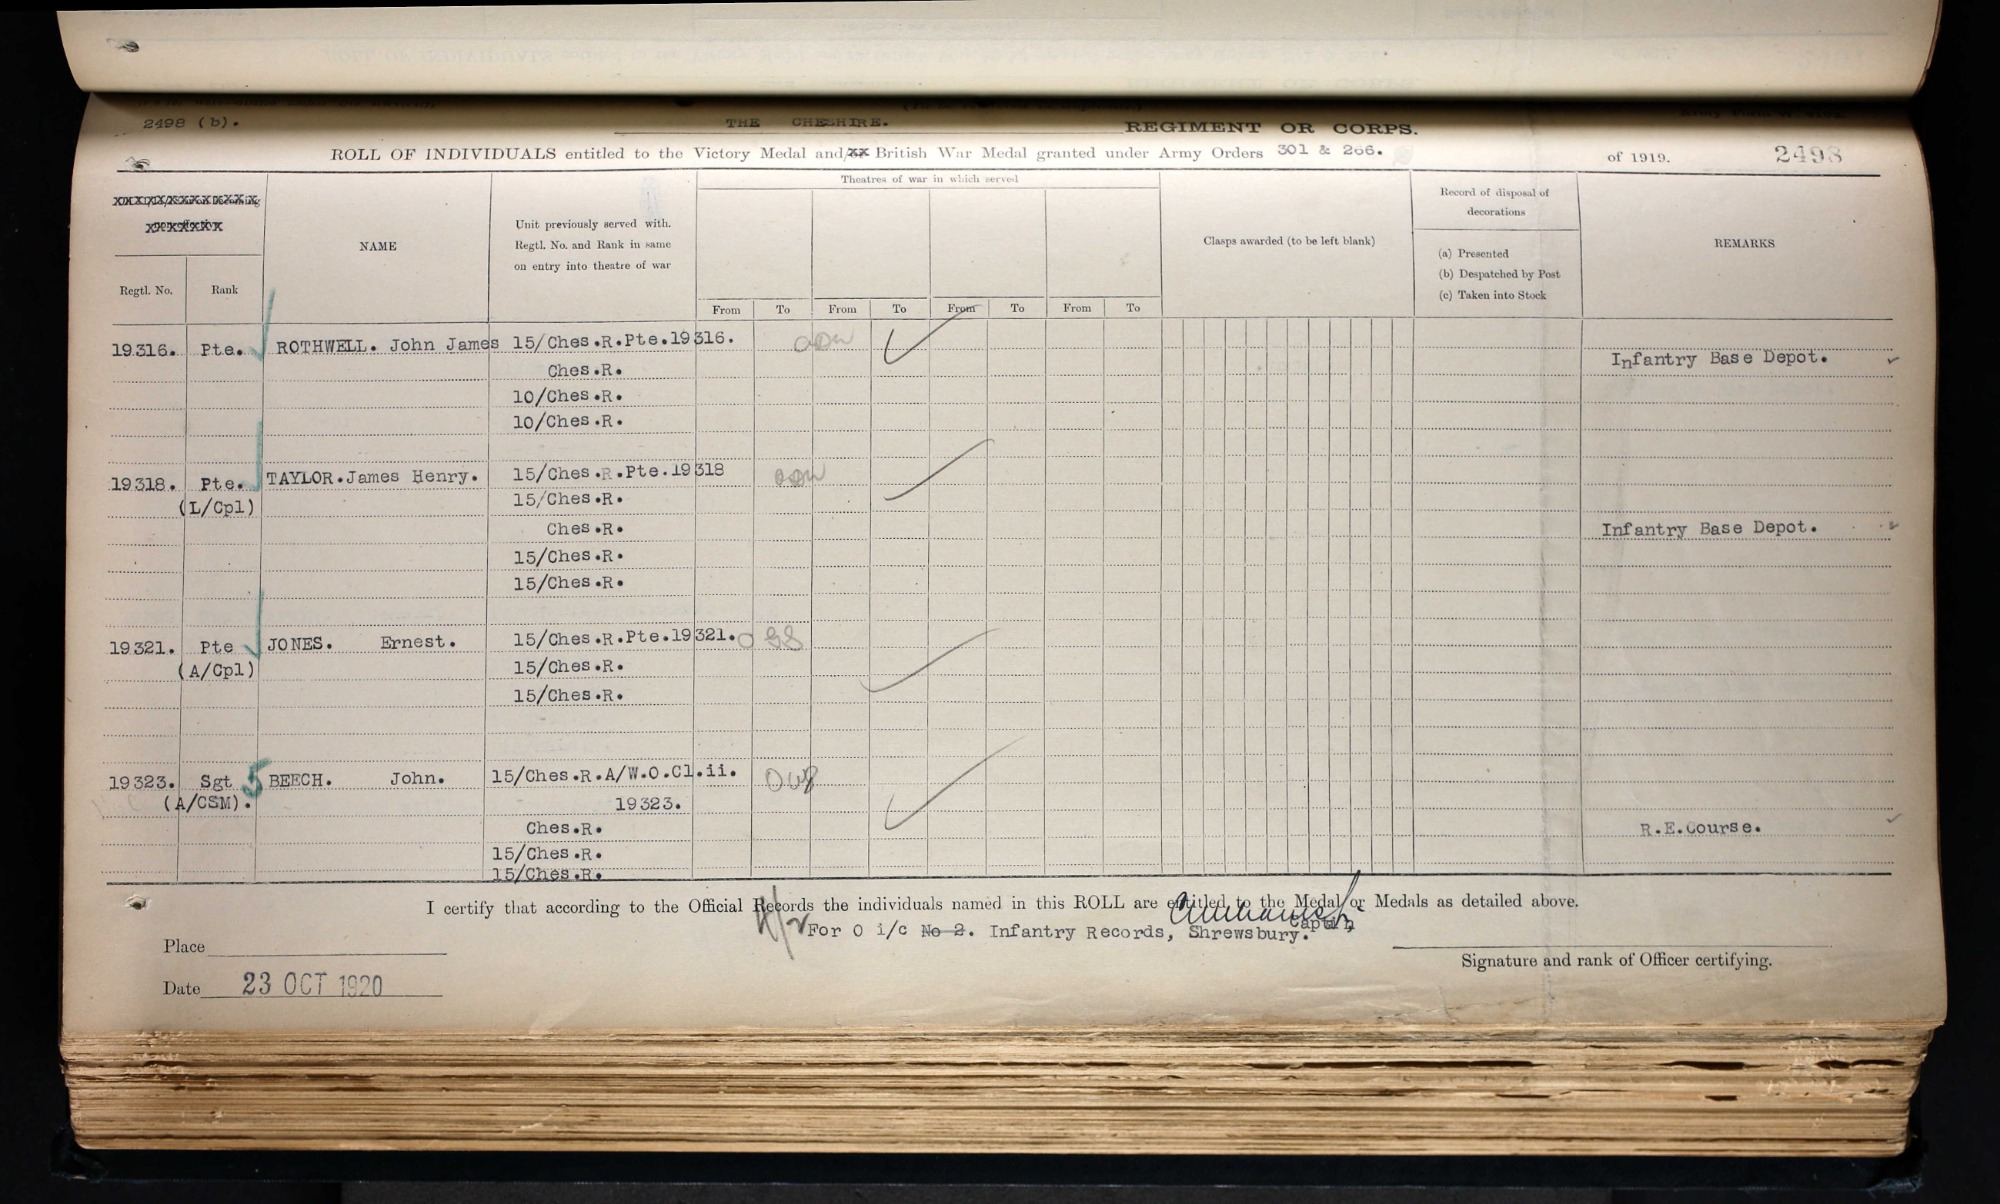 2498 (b).
THE CHESHIRE. REGIMENT OR CORPS.
ROLL OF INDIVIDUALS entitled to the Victory Medal and/xx British War Medal granted under Army Orders 301 & 266. of 1919. 2498
Theatres of war in which served
Record of disposal of
decorations
NAME
Unit previously served with.
Regtl. No. and Rank in same
on entry into theatre of war
Clasps awarded (to be left blank)
REMARKS
(a) Presented
(b) Despatched by Post
(c) Taken into Stock
Regtl. No. Rank
From To From To From To From To
19316. Pte. ROTHWELL. John James 15/Ches.R.Pte.19316.
Infantry Base Depot.
Ches.R.
10/Ches.R.
10/Ches.R.
19318. Pte. TAYLOR.James Henry. 15/Ches.R.Pte.19318
(L/Cpl) 15/Ches.R.
Ches.R. Infantry Base Depot.
15/Ches.R.
15/Ches.R.
19321. Pte JONES. Ernest. 15/Ches.R.Pte.19321.
(A/Cpl) 15/Ches.R.
15/Ches.R.
19323. Sgt 5 BEECH. John. 15/Ches.R.A/W.O.Cl.ii.
(A/CSM). 19323.
Ches.R. R.E.Course.
15/Ches.R.
15/Ches.R.
I certify that according to the Official Records the individuals named in this ROLL are entitled to the Medal or Medals as detailed above.
Captain
For O i/c No 2. Infantry Records, Shrewsbury.
Place
Signature and rank of Officer certifying.
Date 23 OCT 1920